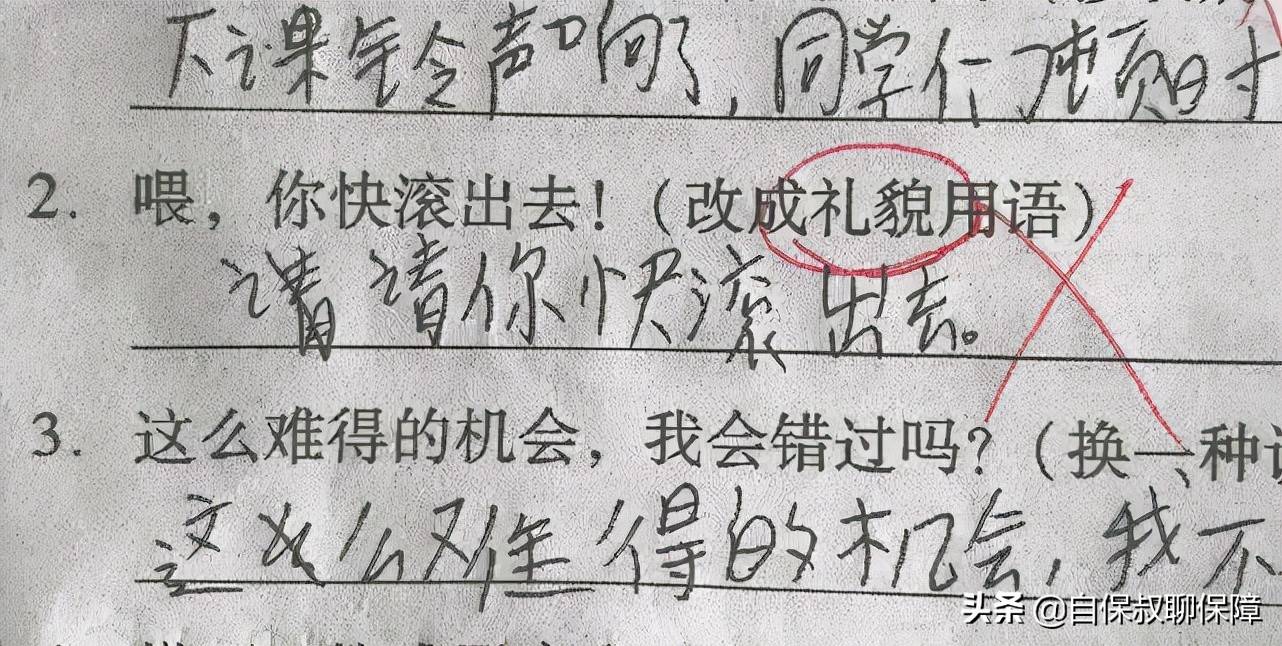 下课铃声响了,同学们顿时
2. 喂,你快滚出去!(改成礼貌用语)
请请你快滚出去。
3. 这么难得的机会,我会错过吗?(换一种
这么难得的机会,我不
头条 @自保叔聊保障